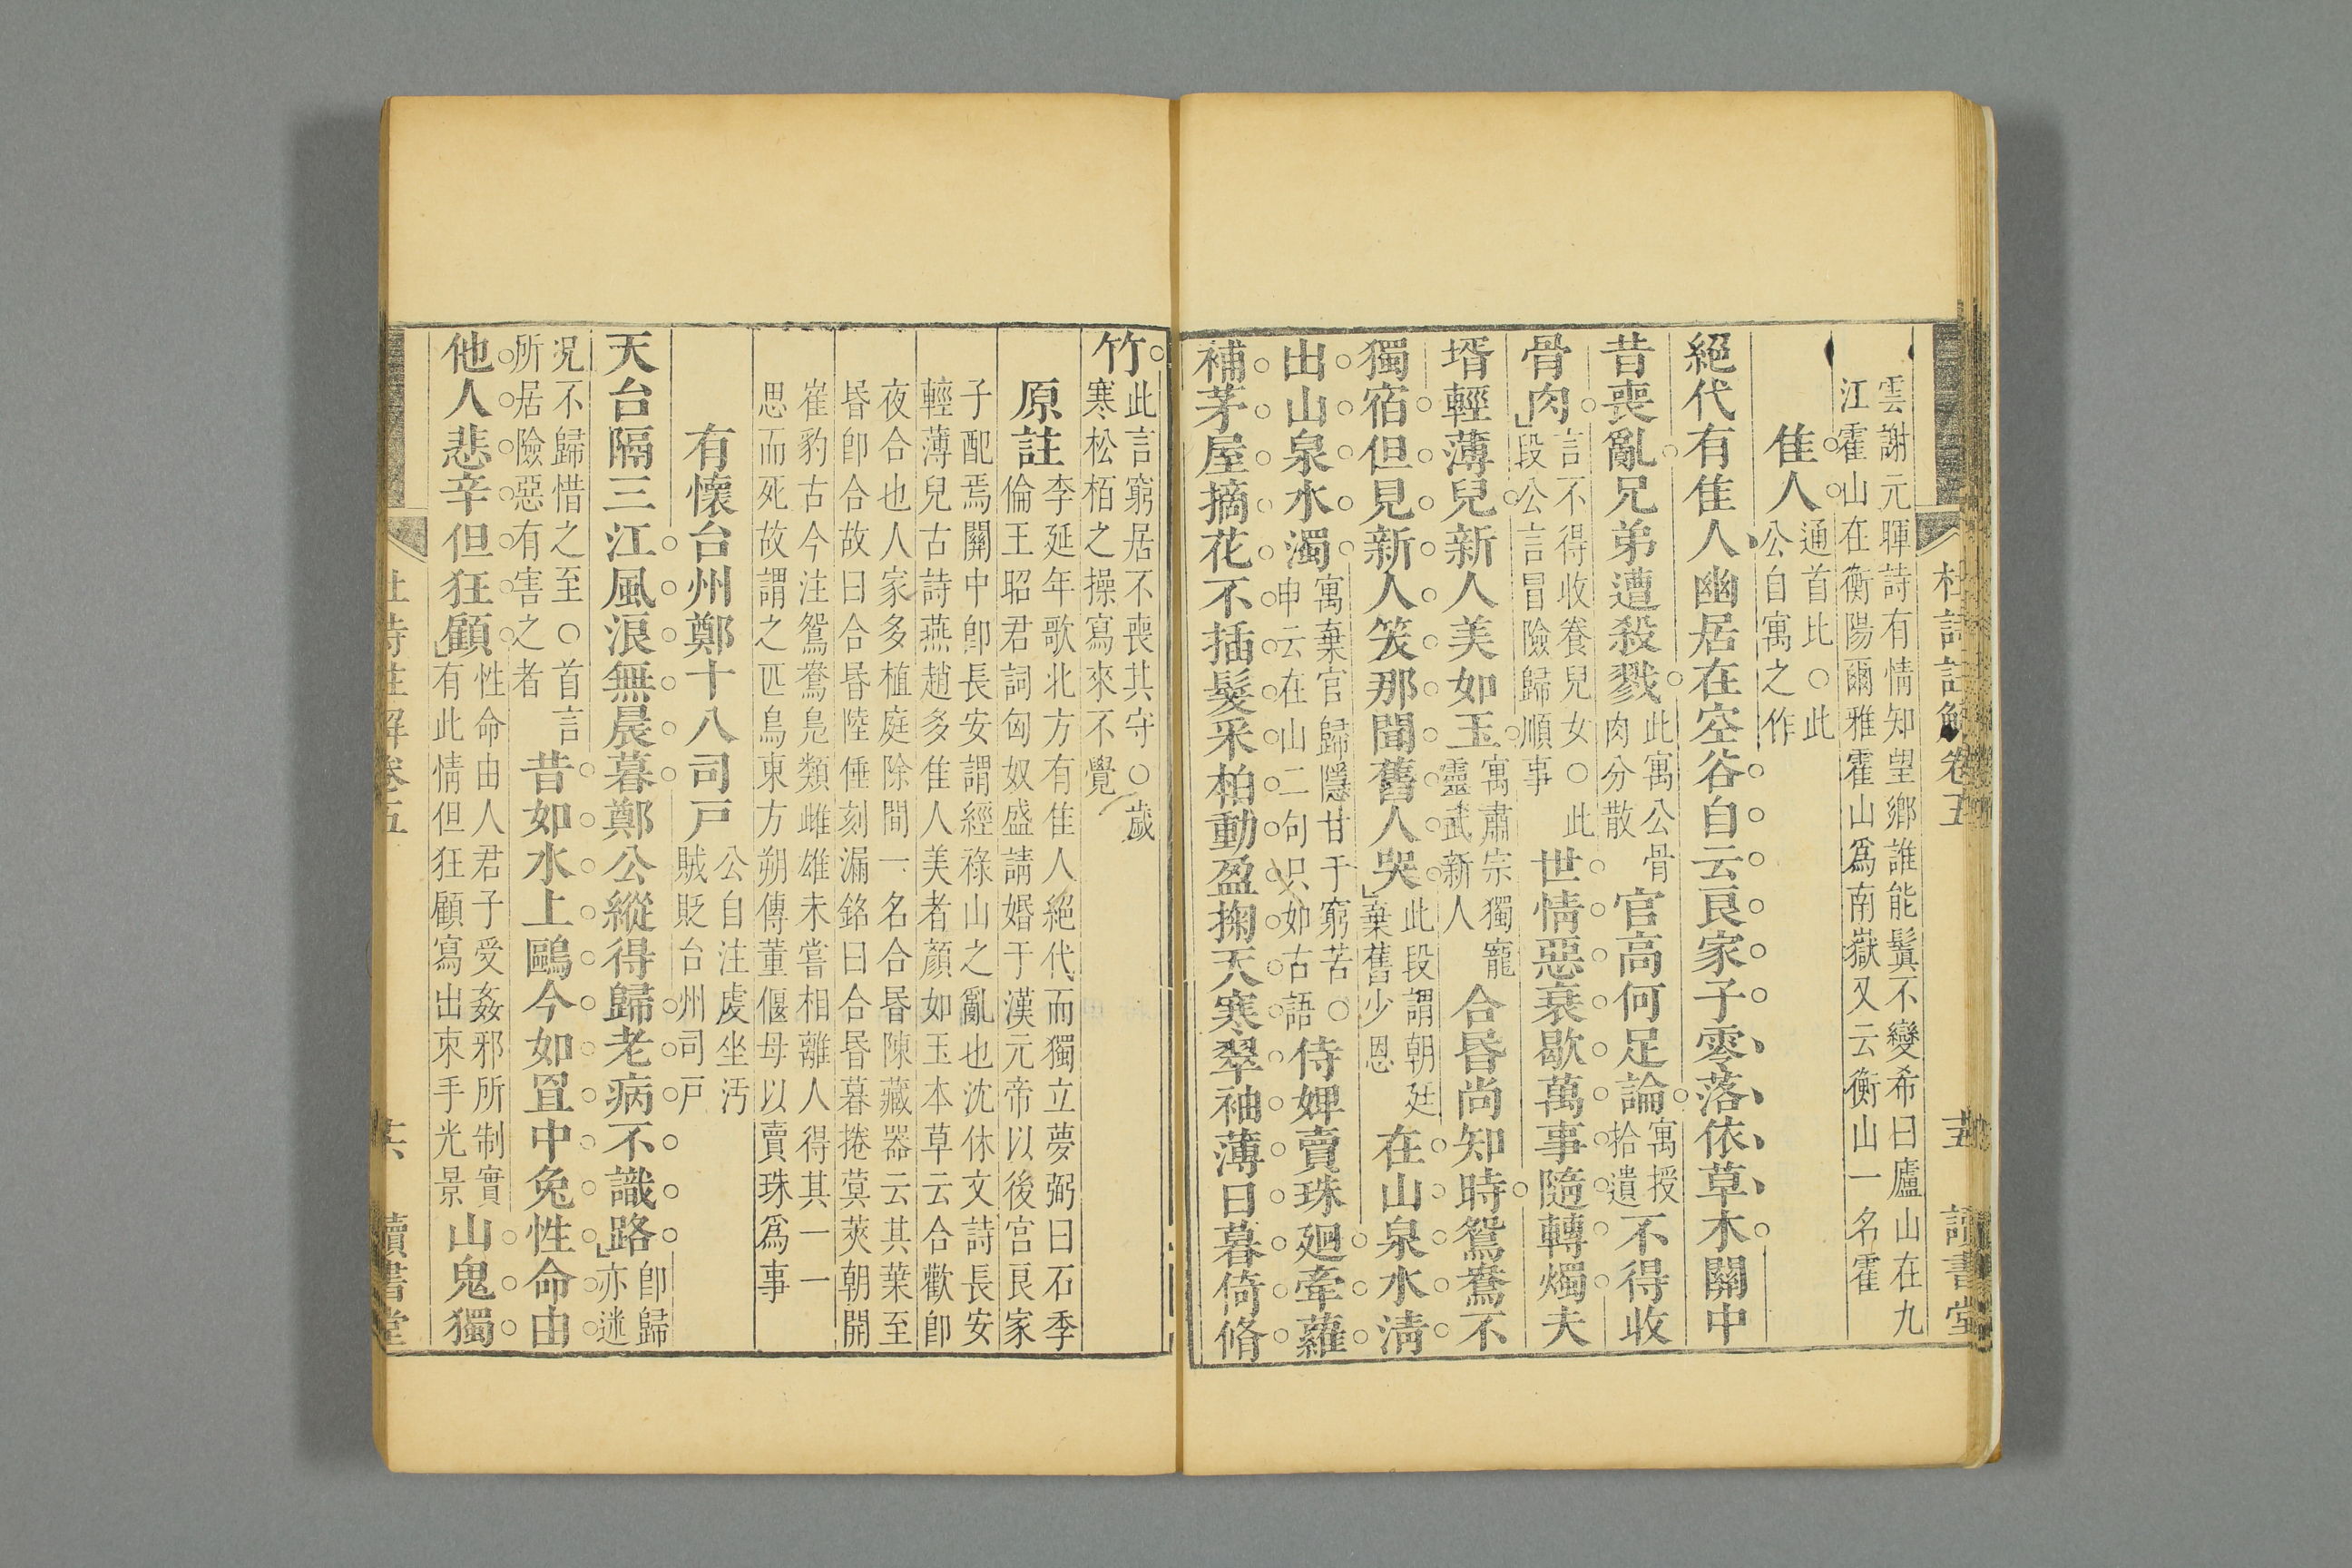 雲謝元暉詩有情知望鄉誰能鬒不變希曰廬山在九
江霍山在衡陽爾雅霍山爲南嶽又云衡山一名霍
佳人 通首比○此公自寓之作
絕代有佳人幽居在空谷自云良家子零落依草木關中
昔喪亂兄弟遭殺戮 此寓公骨肉分散 官高何足論 寓授拾遺 不得收
骨肉 言不得收養兒女○此段公言冒險歸順事 世情惡衰歇萬事隨轉燭夫
壻輕薄兒新人美如玉 寓肅宗獨寵靈武新人 合昏尚知時鴛鴦不
獨宿但見新人笑那聞舊人哭 此段謂朝廷棄舊少恩 在山泉水清
出山泉水濁 寓棄官歸隱甘于窮苦○申云在山二句只如古語 侍婢賣珠廻牽蘿
補茅屋摘花不插髮采柏動盈掬天寒翠袖薄日暮倚脩
杜詩註解卷五 讀書堂
竹 此言窮居不喪其守○歲寒松栢之操寫來不覺
原註 李延年歌北方有佳人絕代而獨立夢弼曰石季
倫王昭君詞匈奴盛請婚于漢元帝以後宮良家
子配焉關中卽長安謂經祿山之亂也沈休文詩長安
輕薄兒古詩燕趙多佳人美者顏如玉本草云合歡卽
夜合也人家多植庭除間一名合昏陳藏器云其葉至
昏卽合故曰合昏陸倕刻漏銘曰合昏暮捲蓂莢朝開
崔豹古今注鴛鴦鳧類雌雄未嘗相離人得其一一
思而死故謂之匹鳥東方朔傳董偃母以賣珠爲事
有懷台州鄭十八司戶 公自注虔坐汚賊貶台州司戶
天台隔三江風浪無晨暮鄭公縱得歸老病不識路 卽歸亦迷
况不歸惜之至○首言所居險惡有害之者 昔如水上鷗今如罝中兔性命由
他人悲辛但狂顧 性命由人君子受姦邪所制實有此情但狂顧寫出束手光景 山鬼獨
杜詩註解卷五 共 讀書堂